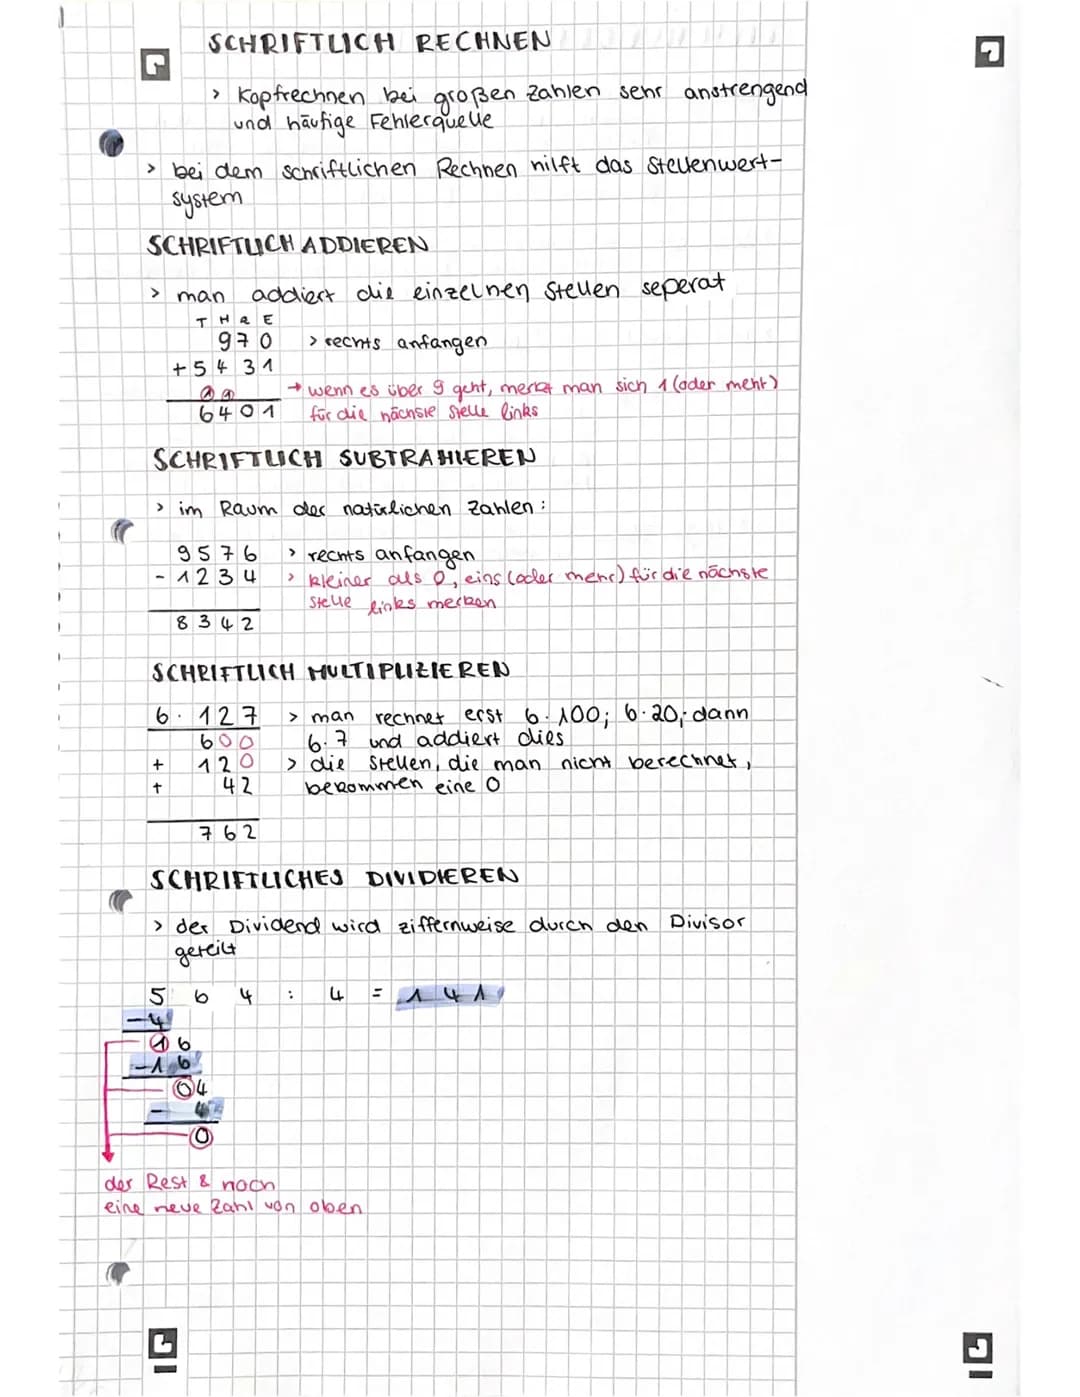 SCHRIFTLICH RECHNEN
> Kopfrechnen bei großen Zahlen sehr anstrengend
und häufige Fehlerquelle
> bei dem schriftlichen Rechnen hilft das Stellenwert-
system
SCHRIFTLICH ADDIEREN
> man addiert die einzelnen Stellen seperat
T H Z E
970 > rechts anfangen
+5431
1 1 → wenn es über 9 geht, merkt man sich 1 (oder mehr)
6401 für die nächste Stelle links
SCHRIFTLICH SUBTRAHIEREN
> im Raum der natürlichen Zahlen:
9576 > rechts anfangen
- 1234 > kleiner als 0, eins (oder mehr) für die nächste
Stelle links merken
8342
SCHRIFTLICH MULTIPLIZIEREN
6 · 127 > man rechnet erst 6·100; 6·20; dann
600 6·7 und addiert dies
+ 120 > die Stellen, die man nicht berechnet,
+ 42 bekommen eine 0
762
SCHRIFTLICHES DIVIDIEREN
> der Dividend wird ziffernweise durch den Divisor
geteilt
5 6 4 : 4 = 141
-4
16
-16
04
- 4
0
der Rest & noch
eine neue Zahl von oben